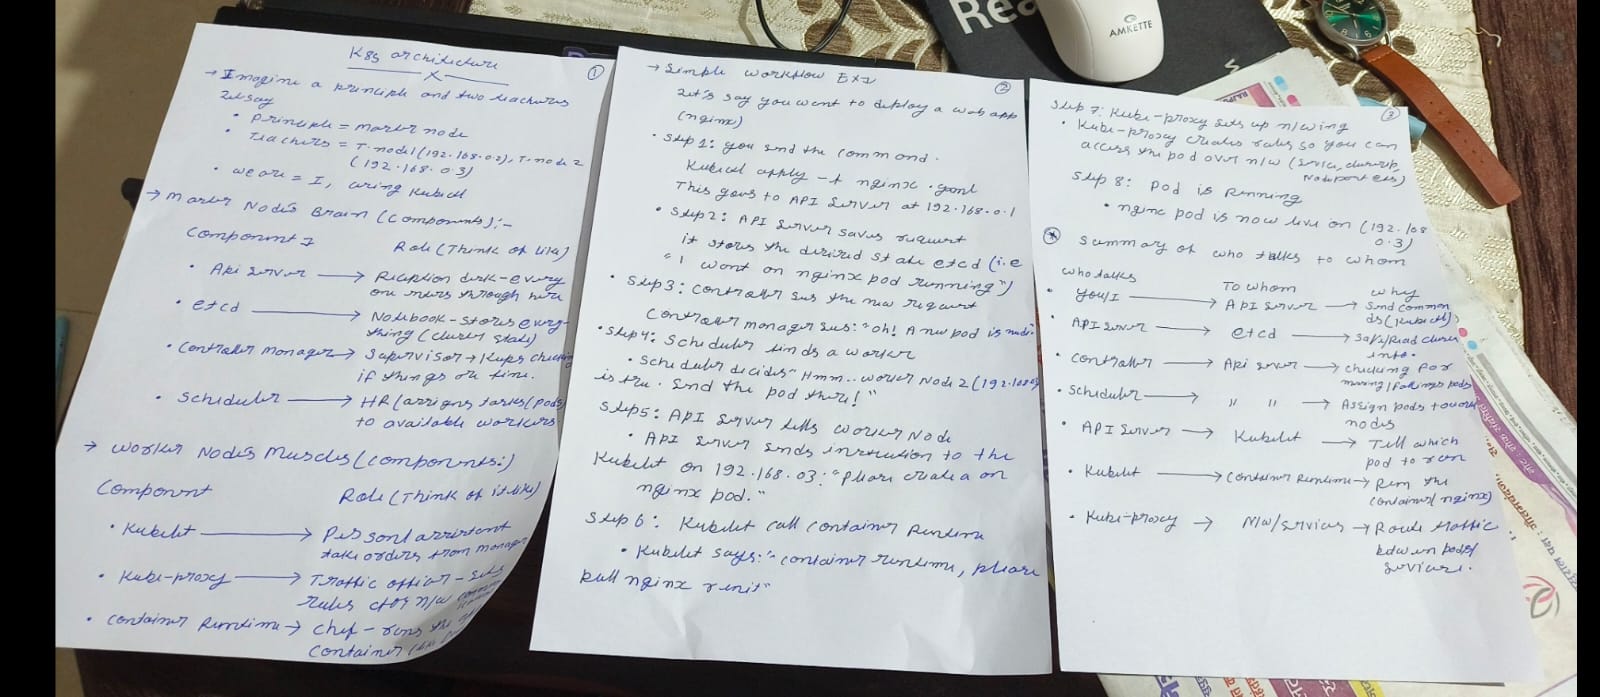 K8s architecture
①
→ Imagine a principle and two teachers
Let say
• principle = master node
• Teachers = T-node1 (192.168.0.2), T-node 2
(192.168.0.3)
• we are = I, using kubectl
→ Master Node's Brain (components):-
Component
Role (Think of like)
• Api server → Reception desk - every
one
through here
• etcd → Notebook - stores every-
thing (cluster state)
• Controller manager → Supervisor → keeps checking
if things are fine.
• Scheduler → HR (assigns tasks (pods)
to available workers
→ Worker Nodes Muscles (components:)
Component
Role (Think of it like)
• Kubelet → Personl assistant
take orders from manager
• Kube-proxy → Traffic officer - sets
rules for n/w
• container Runtime → Chef - runs the
container
②
→ Simple workflow Ex1
Let's say you want to deploy a web app
(nginx)
• Step 1: you send the command.
Kubectl apply -f nginx.yaml
This goes to API Server at 192.168.0.1
• Step 2: API Server saves request
it stores the desired state etcd (i.e
"I want an nginx pod running")
• Step 3: Controller sees the new request
Controller manager sees: "oh! A new pod is
• Step 4: Scheduler finds a worker
• Scheduler decides "Hmm.. worker Node 2 (192.168.0
is free. Send the pod there!"
Step 5: API Server tells worker Node
• API Server sends instruction to the
Kubelet on 192.168.03: "Please create an
nginx pod."
Step 6: Kubelet call container Runtime
• Kubelet says: "container runtime, please
pull nginx & run it"
③
Step 7: Kube-proxy sets up n/wing
• Kube-proxy creates rules so you can
access the pod over n/w (service, clusterip,
Nodeport etc)
Step 8: Pod is Running
• nginx pod is now live on (192.168
0.3)
Summary of who talks to whom
who talks
To whom
why
• You/I → API Server → Send comman
ds (kubectl)
• API Server → etcd → Save/Read cluster
info.
• Controller → Api server → checking for
missing/failings pods
• Scheduler → " " → Assign pods to work
nodes
• API Server → Kubelet → Tell which
pod to run
• Kubelet → Container Runtime → Run the
container (nginx)
• Kube-proxy → N/w/services → Route traffic
pods/
services.
Rea
AMKETTE